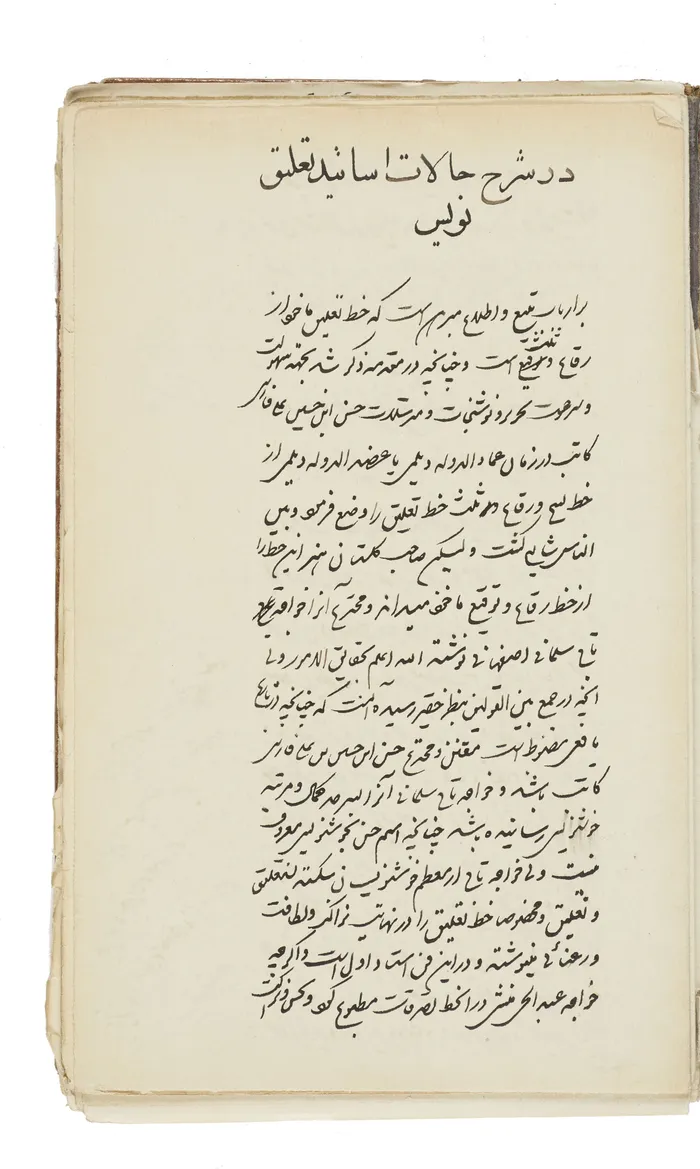 در شرح حالات اساتید تعلیق
نویس
بر ارباب تتبع و اطلاع مبرهن است که خط تعلیق ماخوذ از
رقاع و ثلث توقیع است و چنانچه در مقدمه ذکر شد بجهته سهولت
و سرعت تحریر و نوشتجات و مراسلات حسن ابن حسین علی فارسی
کاتب در زمان عماد الدوله دیلمی یا عضد الدوله دیلمی از
خط نسخ و رقاع و ثلث خط تعلیق را وضع فرموده و بین
الناس شایع گشت و لیکن صاحب گلستان هنر این خط را
از خط رقاع و توقیع ماخوذ میداند و مخترع آنرا خواجه
تاج سلمانی اصفهانی نوشته الله اعلم بحقایق الامور ولی
آنچه در جمع بین القولین بنظر حقیر رسیده آنست که چنانچه در تاریخ
یافعی مضبوط است مقنن و مخترع حسن ابن حسین بن علی فارسی
کاتب باشد و خواجه تاج سلمانی آنرا بسرحد کمال و مرتبه
خوشنویسی رسانیده باشد چنانچه اسم حسن بخوشنویسی معروف
نیست ولی خواجه تاج از معظم خوشنویسان شکسته نستعلیق
و تعلیق و مخصوصا خط تعلیق را در نهایت نزاکت و لطافت
و رعنائی مینوشته و در این فن استاد اول است و اگرچه
خواجه عبد الحی منشی در آن خط تصرفات مطبوع کرد و